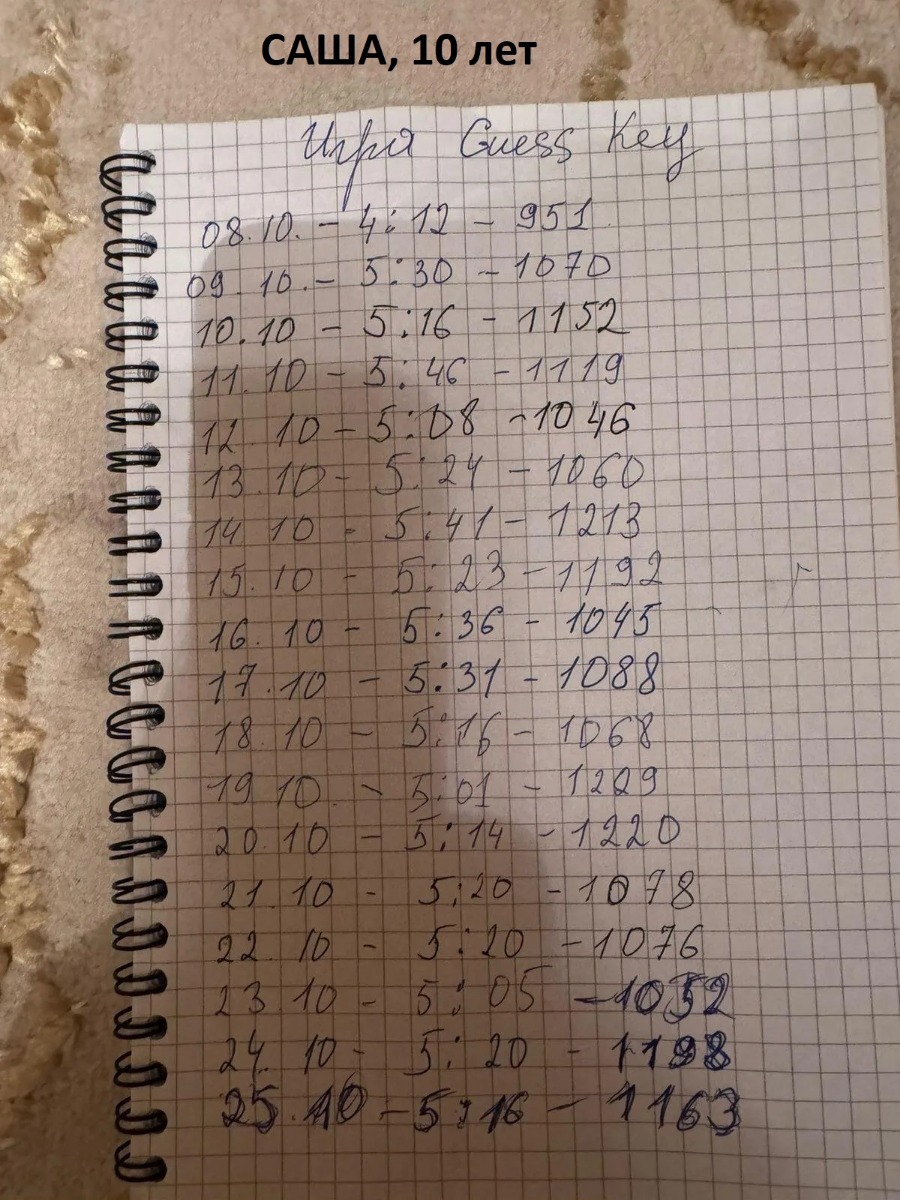 САША, 10 лет
Игра Guess Key
08.10. - 4:12 - 951
09.10. - 5:30 - 1070
10.10 - 5:16 - 1152
11.10 - 5:46 - 1119
12 10 - 5:08 - 1046
13.10 - 5:24 - 1060
14 10 - 5:41 - 1213
15.10 - 5:23 - 1192
16.10 - 5:36 - 1045
17.10 - 5:31 - 1088
18.10 - 5:16 - 1068
19 10. - 5:01 - 1209
20.10 - 5:14 - 1220
21.10 - 5:20 - 1078
22.10 - 5:20 - 1076
23 10 - 5:05 - 1052
24.10 - 5:20 - 1198
25.10 - 5:16 - 1163